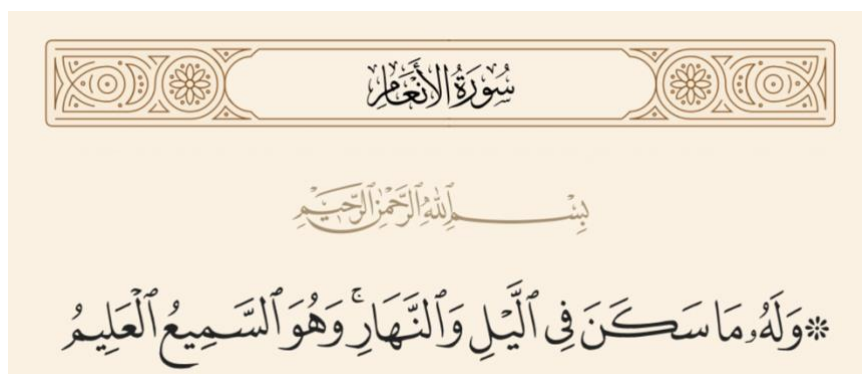 سُورَةُ الأَنْعَامِ
بِسْمِ ٱللَّهِ ٱلرَّحْمَٰنِ ٱلرَّحِيمِ
۞وَلَهُۥ مَا سَكَنَ فِى ٱلَّيْلِ وَٱلنَّهَارِ ۚ وَهُوَ ٱلسَّمِيعُ ٱلْعَلِيمُ